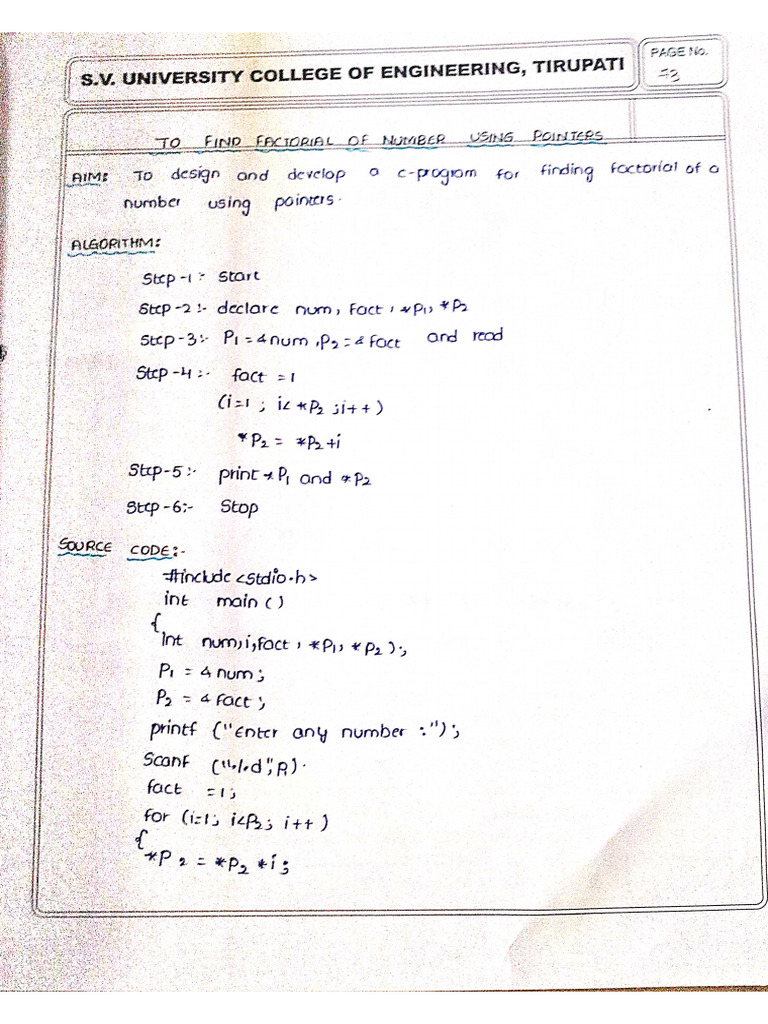 S.V. UNIVERSITY COLLEGE OF ENGINEERING, TIRUPATI
PAGE No.
73
TO FIND FACTORIAL OF NUMBER USING POINTERS
AIM: To design and develop a c-program for finding factorial of a
number using pointers.
ALGORITHM:
Step-1:- Start
Step-2:- declare num, Fact, *P1, *P2
Step-3:- P1=&num, P2=&fact and read
Step-4:- fact =1
(i=1 ; i< *P2 ; i++)
*P2 = *P2+i
Step-5:- print *P1 and *P2
Step-6:- Stop
SOURCE CODE:-
#include <stdio.h>
int main ()
{
int num,i,fact, *P1, *P2);
P1 = &num;
P2 = &fact;
printf ("Enter any number :");
Scanf ("%d", P1).
fact =1;
for (i=1; i<P2; i++)
{
*P2 = *P2 *i;